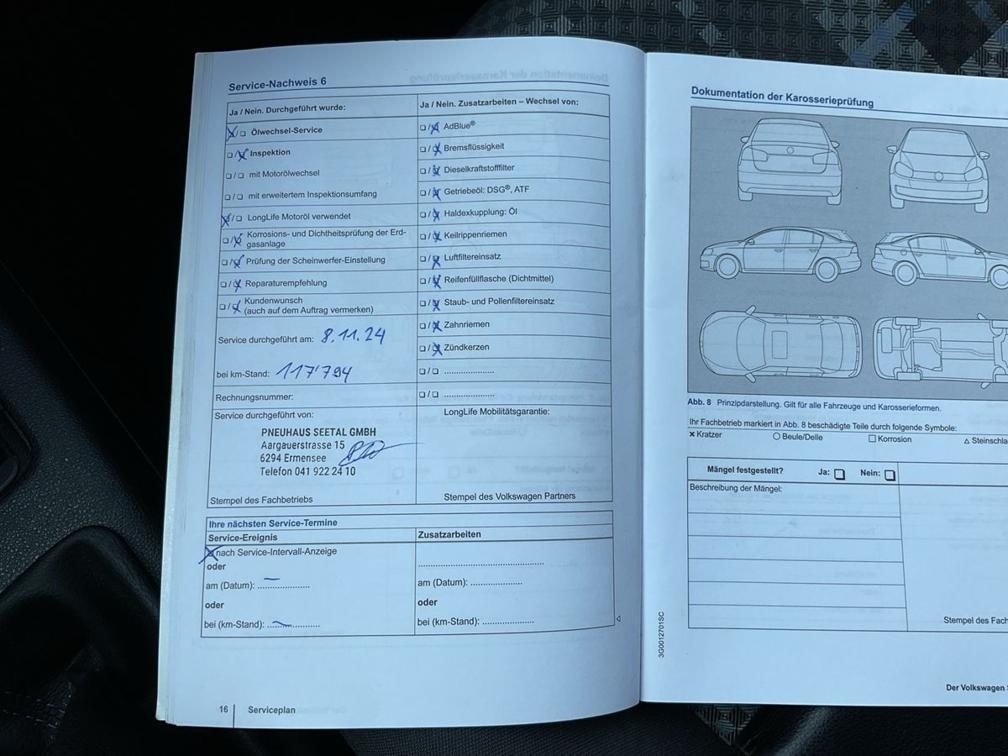 Service-Nachweis 6
Ja / Nein. Durchgeführt wurde:
Ölwechsel-Service
Inspektion
mit Motorölwechsel
mit erweitertem Inspektionsumfang
LongLife Motoröl verwendet
Korrosions- und Dichtheitsprüfung der Erd-
gasanlage
Prüfung der Scheinwerfer-Einstellung
Reparaturempfehlung
Kundenwunsch
(auch auf dem Auftrag vermerken)
Service durchgeführt am: 8.11.24
bei km-Stand: 117'794
Rechnungsnummer:
Service durchgeführt von:
PNEUHAUS SEETAL GMBH
Aargauerstrasse 15
6294 Ermensee
Telefon 041 922 24 10
Stempel des Fachbetriebs
Ja / Nein. Zusatzarbeiten – Wechsel von:
AdBlue®
Bremsflüssigkeit
Dieselkraftstofffilter
Getriebeöl: DSG®, ATF
Haldexkupplung: Öl
Keilrippenriemen
Luftfiltereinsatz
Reifenfüllflasche (Dichtmittel)
Staub- und Pollenfiltereinsatz
Zahnriemen
Zündkerzen
LongLife Mobilitätsgarantie:
Stempel des Volkswagen Partners
Ihre nächsten Service-Termine
Service-Ereignis
nach Service-Intervall-Anzeige
oder
am (Datum):
oder
bei (km-Stand):
Zusatzarbeiten
am (Datum):
oder
bei (km-Stand):
16 Serviceplan
Dokumentation der Karosserieprüfung
Abb. 8 Prinzipdarstellung. Gilt für alle Fahrzeuge und Karosserieformen.
Ihr Fachbetrieb markiert in Abb. 8 beschädigte Teile durch folgende Symbole:
x Kratzer
Beule/Delle
Korrosion
Steinschla
Mängel festgestellt? Ja: Nein:
Beschreibung der Mängel:
Stempel des Fach
3G0012701SC
Der Volkswagen